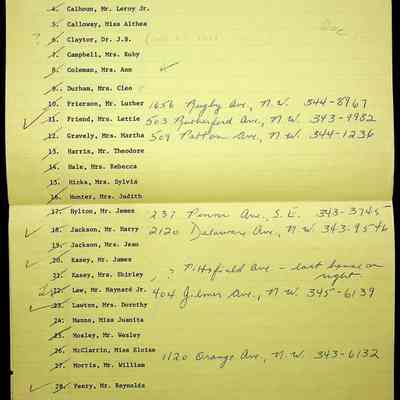 4. Calhoun, Mr. Leroy Jr.
5. Calloway, Miss Althea
? 6. Claytor, Dr. J.B.
7. Campbell, Mrs. Ruby
8. Coleman, Mrs. Ann
9. Durham, Mrs. Cleo
10. Frierson, Mr. Luther 1656 Rugby Ave., N.W. 344-8967
11. Friend, Mrs. Lettie 503 Rutherford Ave., N.W. 343-9982
12. Gravely, Mrs. Martha 509 Patton Ave., N.W. 344-1236
13. Harris, Mr. Theodore
14. Hale, Mrs. Rebecca
15. Hinks, Mrs. Sylvia
16. Hunter, Mrs. Judith
17. Hylton, Mr. James 237 Penn Ave., S.E. 343-3745
18. Jackson, Mr. Harry 2120 Delaware Ave., N.W. 343-9546
19. Jackson, Mrs. Jean
20. Kasey, Mr. James
21. Kasey, Mrs. Shirley ? Pittsfield Ave - last house on right
22. Law, Mr. Maynard Jr. 404 Gilmer Ave., N.W. 345-6139
23. Lawton, Mrs. Dorothy
24. Manns, Miss Juanita
25. Mosley, Mr. Wesley
26. McClarrin, Miss Eloise
27. Morris, Mr. William 1120 Orange Ave., N.W. 343-6132
28. Penry, Mr. Reynolds